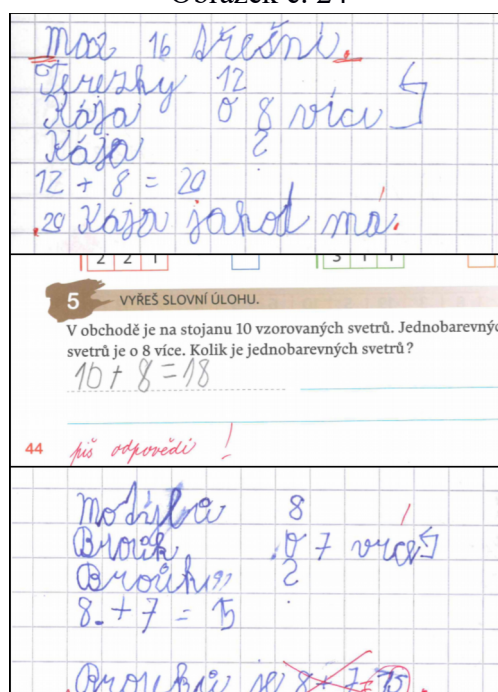 Obrázek č. 24
má 16 třešní.
Terezky 12
Kája o 8 více
Kája ?
12 + 8 = 20
20 Kája jahod má.
2 2 1 3 1 1
5 VYŘEŠ SLOVNÍ ÚLOHU.
V obchodě je na stojanu 10 vzorovaných svetrů. Jednobarevnýc
svetrů je o 8 více. Kolik je jednobarevných svetrů?
10 + 8 = 18
44 piš odpovědi !
8
o 7 více
?
8 + 7 = 15
je 8 + 7 = 15.